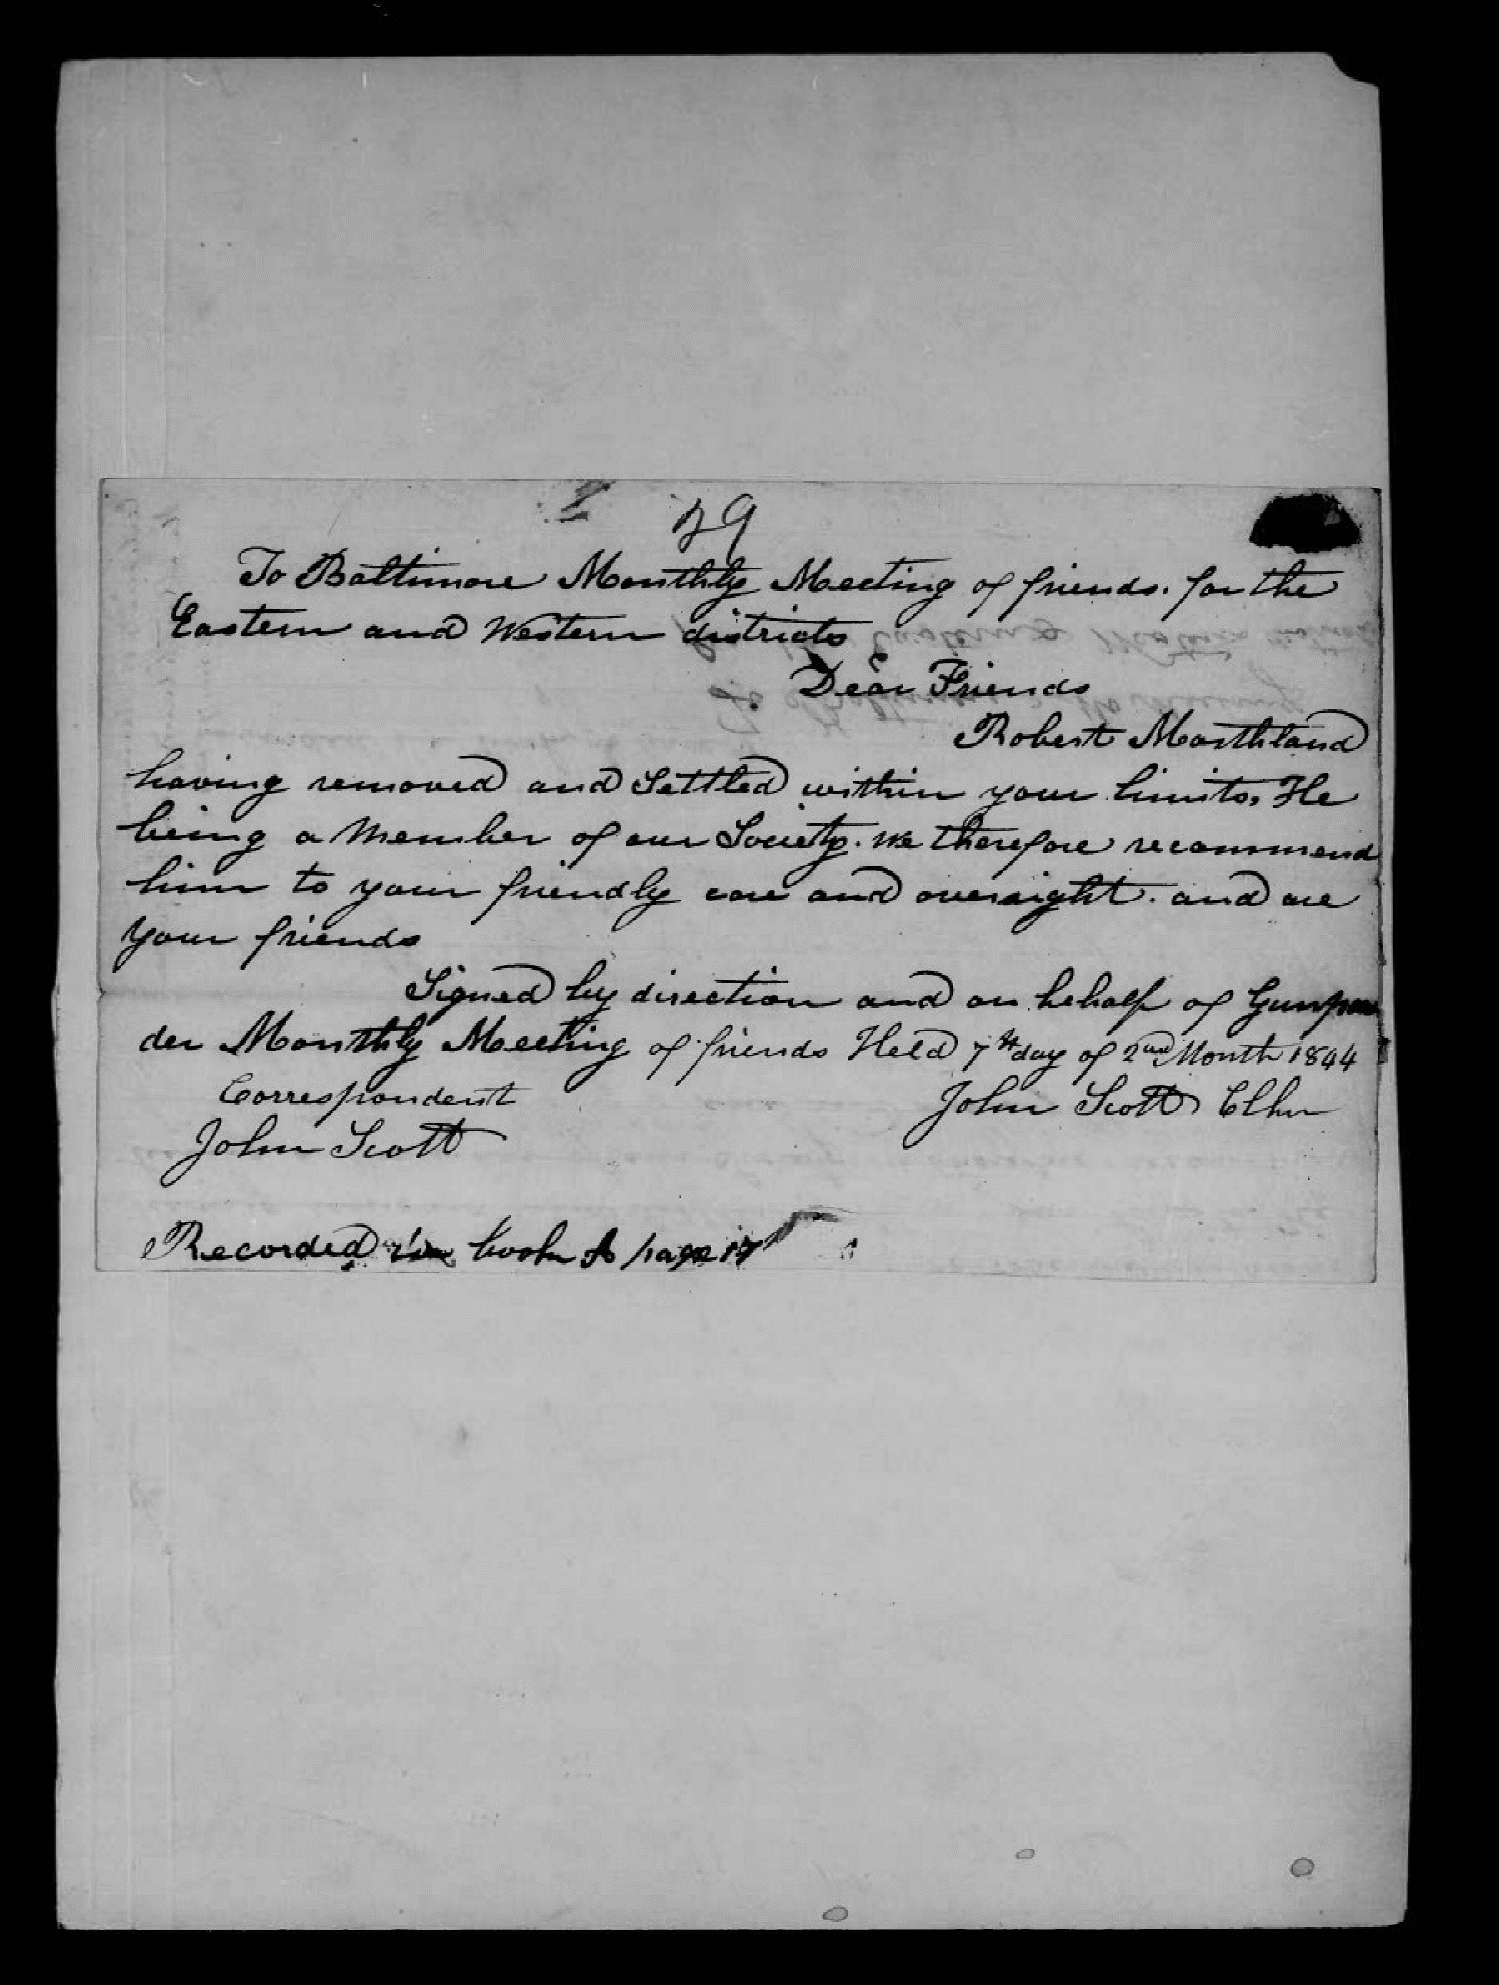 39
To Baltimore Monthly Meeting of friends. for the
Eastern and Western districts
Dear Friends
Robert Marthland
having removed and Settled within your limits, He
being a Member of our Society. We therefore recommend
him to your friendly care and oversight. and are
your friends
Signed by direction and on behalf of Gunpow
der Monthly Meeting of friends Held 7th day of 2nd Month 1844
Correspondent John Scott Clk
John Scott
Recorded in book A page 17